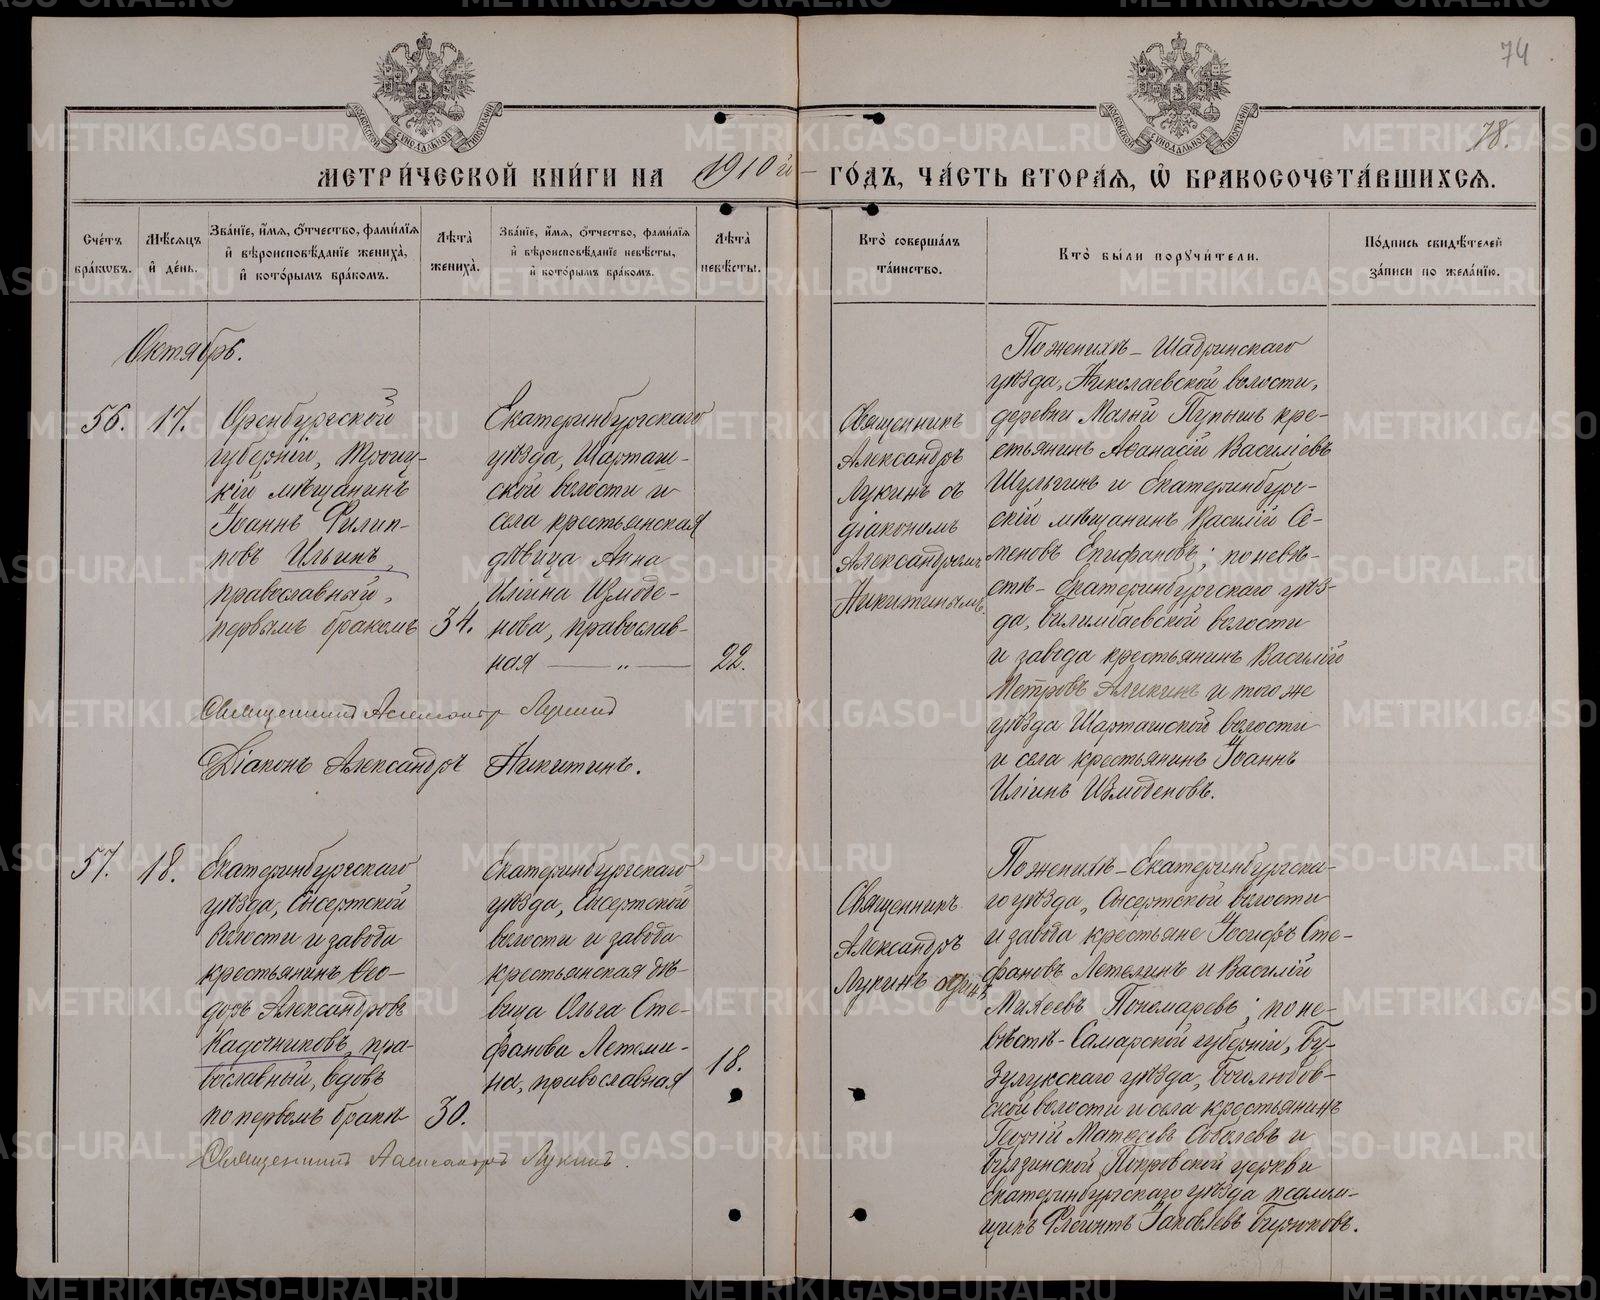 74
78.
МЕТРИ́ЧЕСКОЙ КНИ́ГИ НА 1910й ГО́ДЪ, ЧА́СТЬ ВТОРА́Я, Ѡ҆ БРАКОСОЧЕТА́ВШИХСЯ.
Сче́тъ бра́кωвъ.
Мѣ́сяцъ и҆ де́нь.
Зва́нїе, и҆́мя, ѻ҆́тчество, фами́лїя и҆ вѣроисповѣ́данїе жениха̀, и҆ кото́рымъ бра́комъ.
Лѣ́та̀ жениха̀.
Зва́нїе, и҆́мя, ѻ҆́тчество, фами́лїя и҆ вѣроисповѣ́данїе невѣ́сты, и҆ кото́рымъ бра́комъ.
Лѣ́та̀ невѣ́сты.
Кто̀ соверша́лъ та́инство.
Кто̀ бы́ли порꙋчи́тели.
По́дпись свидѣ́телей за́писи по жела́нїю.
Октябрь.
56.
17.
Оренбургской
губерніи, Троиц-
кій мѣщанинъ
Іоаннъ Филип-
повъ Ильинъ,
православный,
первымъ бракомъ
34.
Екатеринбургскаго
уѣзда, Шарташ-
ской волости и
села крестьянская
дѣвица Анна
Иліина Измоде-
нова, православ-
ная — „ —
22.
Священникъ
Александръ
Лукинъ съ
діакономъ
Александромъ
Никитинымъ.
По женихѣ – Шадринскаго
уѣзда, Николаевской волости,
деревни Малый Пупышъ кре-
стьянинъ Аѳанасій Василіевъ
Шулгинъ и Екатеринбург-
скій мѣщанинъ Василій Се-
меновъ Епифановъ; по невѣ-
стѣ – Екатеринбургскаго уѣз-
да, Билимбаевской волости
и завода крестьянинъ Василій
Петровъ Аликинъ и того же
уѣзда Шарташской волости
и села крестьянинъ Іоаннъ
Иліинъ Измоденовъ.
Священникъ Александръ Лукинъ
Діаконъ Александръ Никитинъ.
57.
18.
Екатеринбургскаго
уѣзда, Сысертской
волости и завода
крестьянинъ Ѳео-
доръ Александровъ
Кадочниковъ, пра-
вославный, вдовъ
по первомъ бракѣ
30.
Екатеринбургскаго
уѣзда, Сысертской
волости и завода
крестьянская дѣ-
вица Ольга Сте-
фанова Летеми-
на, православная
18.
Священникъ
Александръ
Лукинъ одинъ
По женихѣ – Екатеринбургска-
го уѣзда, Сысертской волости
и завода крестьяне Іосифъ Сте-
фановъ Летеминъ и Василій
Михеевъ Пономаревъ; по не-
вѣстѣ – Самарской губерніи, Бу-
зулукскаго уѣзда, Боголюбов-
ской волости и села крестьянинъ
Георгій Матѳеевъ Соболевъ и
Екатеринбургскаго уѣзда псалом-
щикъ Іаковлевъ Бирюковъ.
Священникъ Александръ Лукинъ.
METRIKI.GASO-URAL.RU